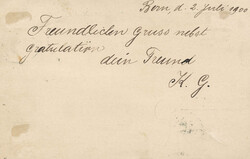 Born, d. 2. Juli 1900
Freundlichen Gruss nebst
gratulation
dein Freund
K. G.